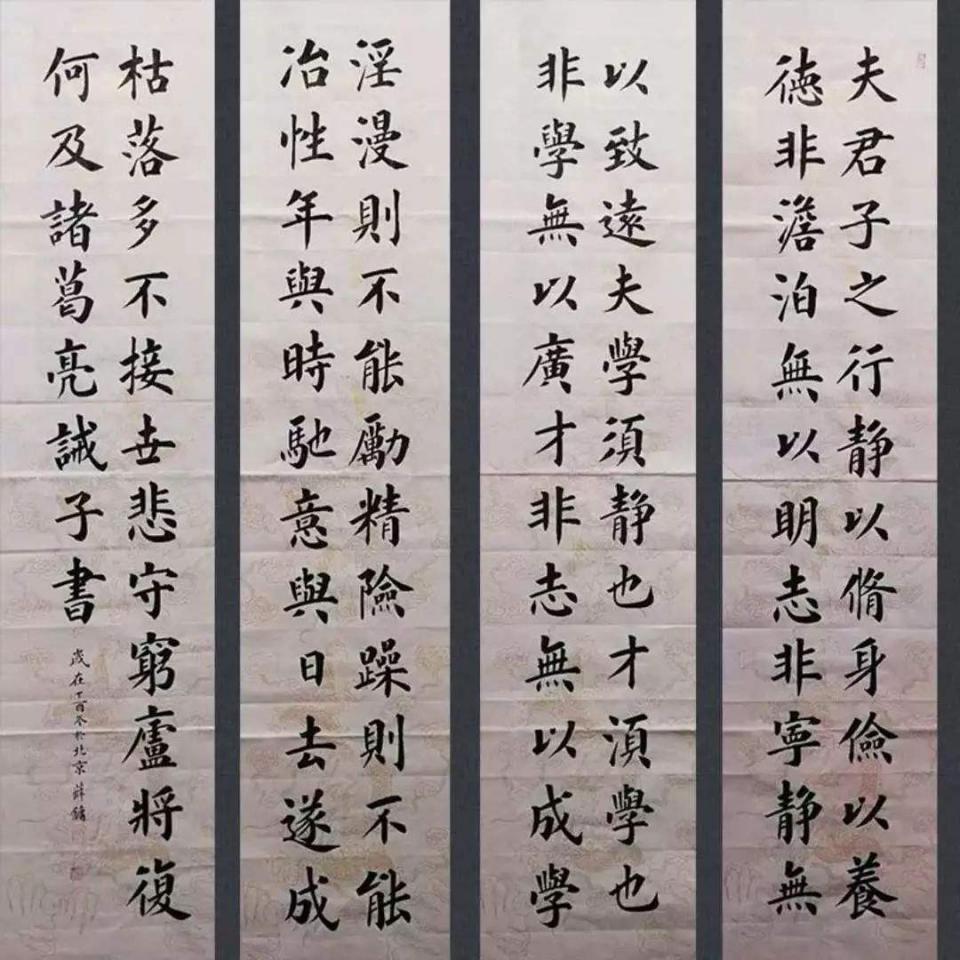 夫君子之行静以脩身儉以養
德非澹泊無以明志非寧静無
以致遠夫學須静也才須學也
非學無以廣才非志無以成學
淫漫則不能勵精險躁則不能
冶性年與時馳意與日去遂成
枯落多不接世悲守窮廬將復
何及諸葛亮誡子書
歲在丁酉冬於北京薛鏽